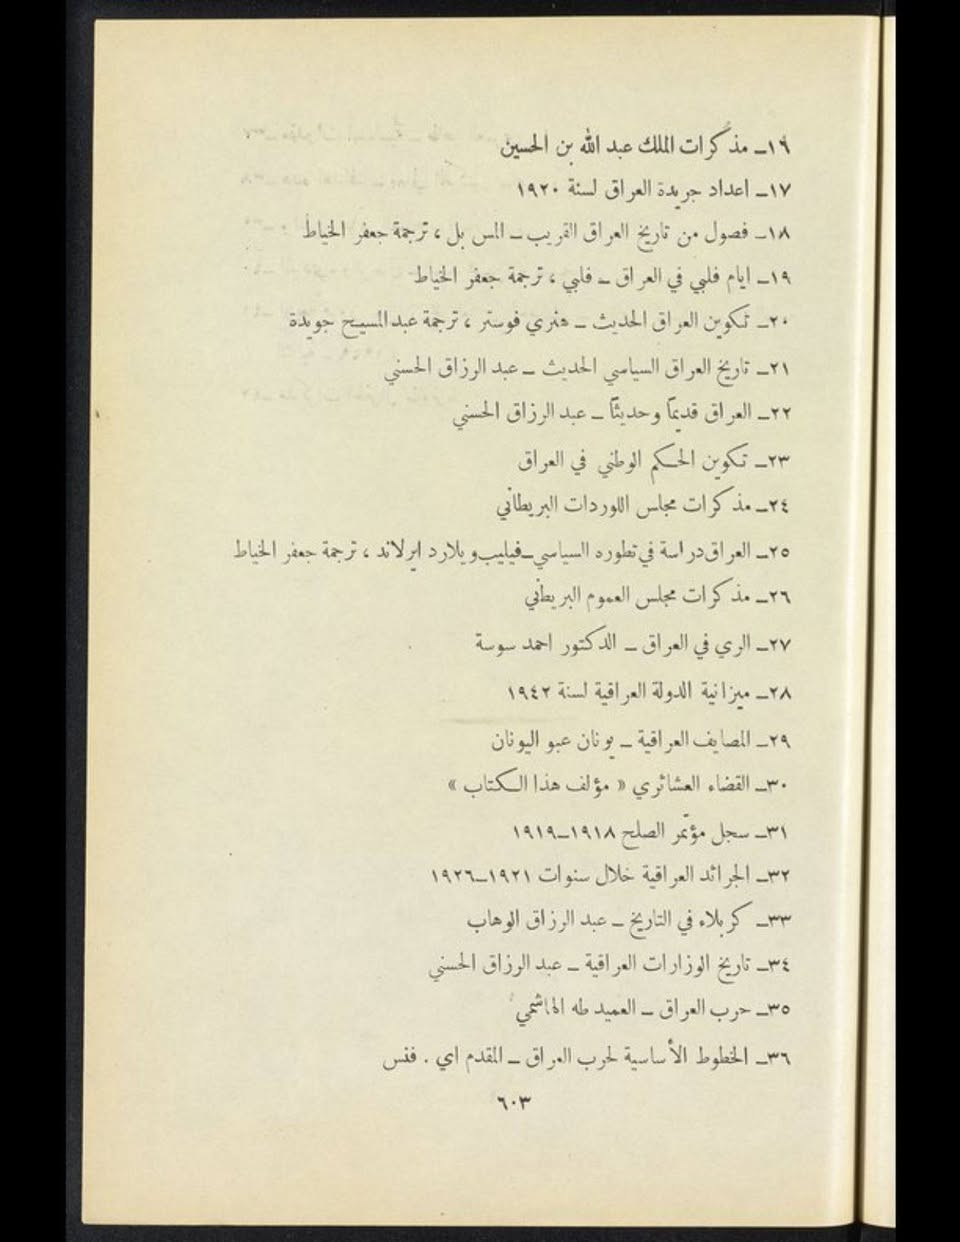 ١٩ـ مذكرات الملك عبد الله بن الحسين
١٧ـ اعداد جريدة العراق لسنة ١٩٢٠
١٨ـ فصول من تاريخ العراق القريب ـ المس بل ، ترجمة جعفر الخياط
١٩ـ ايام فلبي في العراق ـ فلبي ، ترجمة جعفر الخياط
٢٠ـ تكوين العراق الحديث ـ هنري فوستر ، ترجمة عبد المسيح جويدة
٢١ـ تاريخ العراق السياسي الحديث ـ عبد الرزاق الحسني
٢٢ـ العراق قديماً وحديثاً ـ عبد الرزاق الحسني
٢٣ـ تكوين الحكم الوطني في العراق
٢٤ـ مذكرات مجلس اللوردات البريطاني
٢٥ـ العراق دراسة في تطوره السياسي ـ فيليب ويلارد ايرلاند ، ترجمة جعفر الخياط
٢٦ـ مذكرات مجلس العموم البريطاني
٢٧ـ الري في العراق ـ الدكتور احمد سوسة
٢٨ـ ميزانية الدولة العراقية لسنة ١٩٤٢
٢٩ـ المصايف العراقية ـ يونان عبو اليونان
٣٠ـ القضاء العشائري « مؤلف هذا الكتاب »
٣١ـ سجل مؤتمر الصلح ١٩١٨ـ١٩١٩
٣٢ـ الجرائد العراقية خلال سنوات ١٩٢١ـ١٩٢٦
٣٣ـ كربلاء في التاريخ ـ عبد الرزاق الوهاب
٣٤ـ تاريخ الوزارات العراقية ـ عبد الرزاق الحسني
٣٥ـ حرب العراق ـ العميد طه الهاشمي
٣٦ـ الخطوط الأساسية لحرب العراق ـ المقدم اي . فنس
٦٠٣